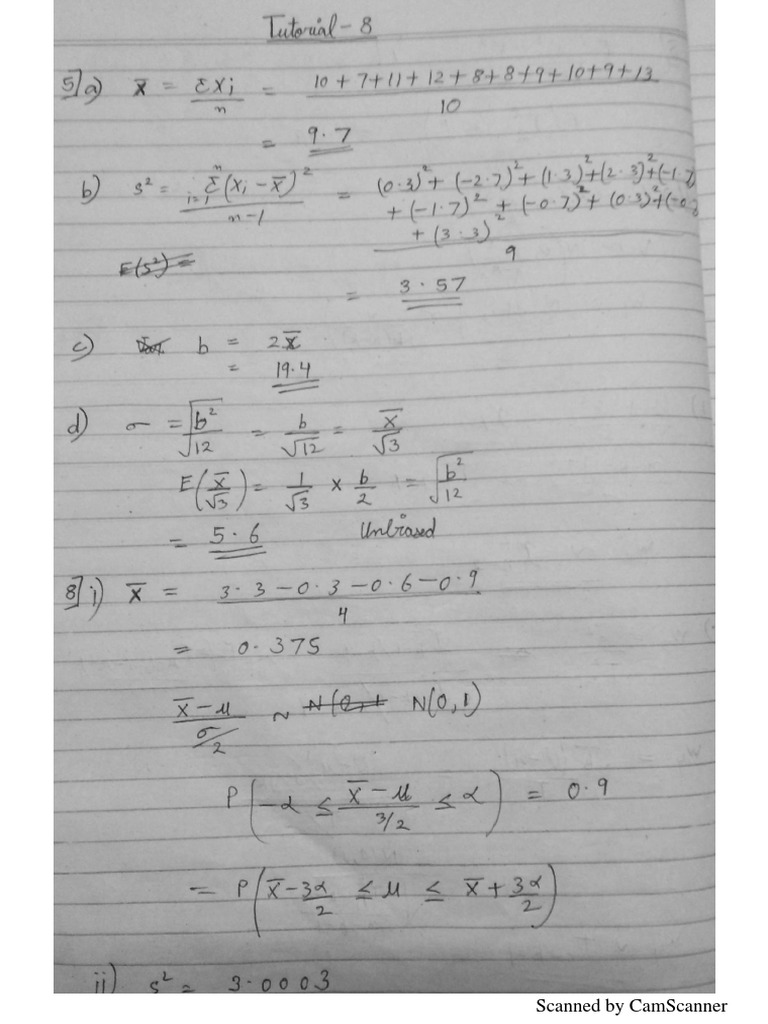 Tutorial - 8
5] a) x̄ = ΣXi / n = 10 + 7 + 11 + 12 + 8 + 8 + 9 + 10 + 9 + 13 / 10
= 9.7
b) s² = Σ(Xi - x̄)² / n-1 = (0.3)² + (-2.7)² + (1.3)² + (2.3)² + (-1.7)
i=1 n
+ (-1.7)² + (-0.7)² + (0.3)² + (-0.
+ (3.3)²
9
E(s²) =
= 3.57
c) b = 2x̄
= 19.4
d) σ = √b²/12 = b/√12 = x̄/√3
E(x̄/√3) = 1/√3 × b/2 = √b²/12
= 5.6 Unbiased
8] i) x̄ = 3.3 - 0.3 - 0.6 - 0.9 / 4
= 0.375
x̄ - μ / σ/2 ~ N(0,1 N(0,1)
P(-α ≤ x̄ - μ / 3/2 ≤ α) = 0.9
= P(x̄ - 3α/2 ≤ μ ≤ x̄ + 3α/2)
ii) s² = 3.0003
Scanned by CamScanner